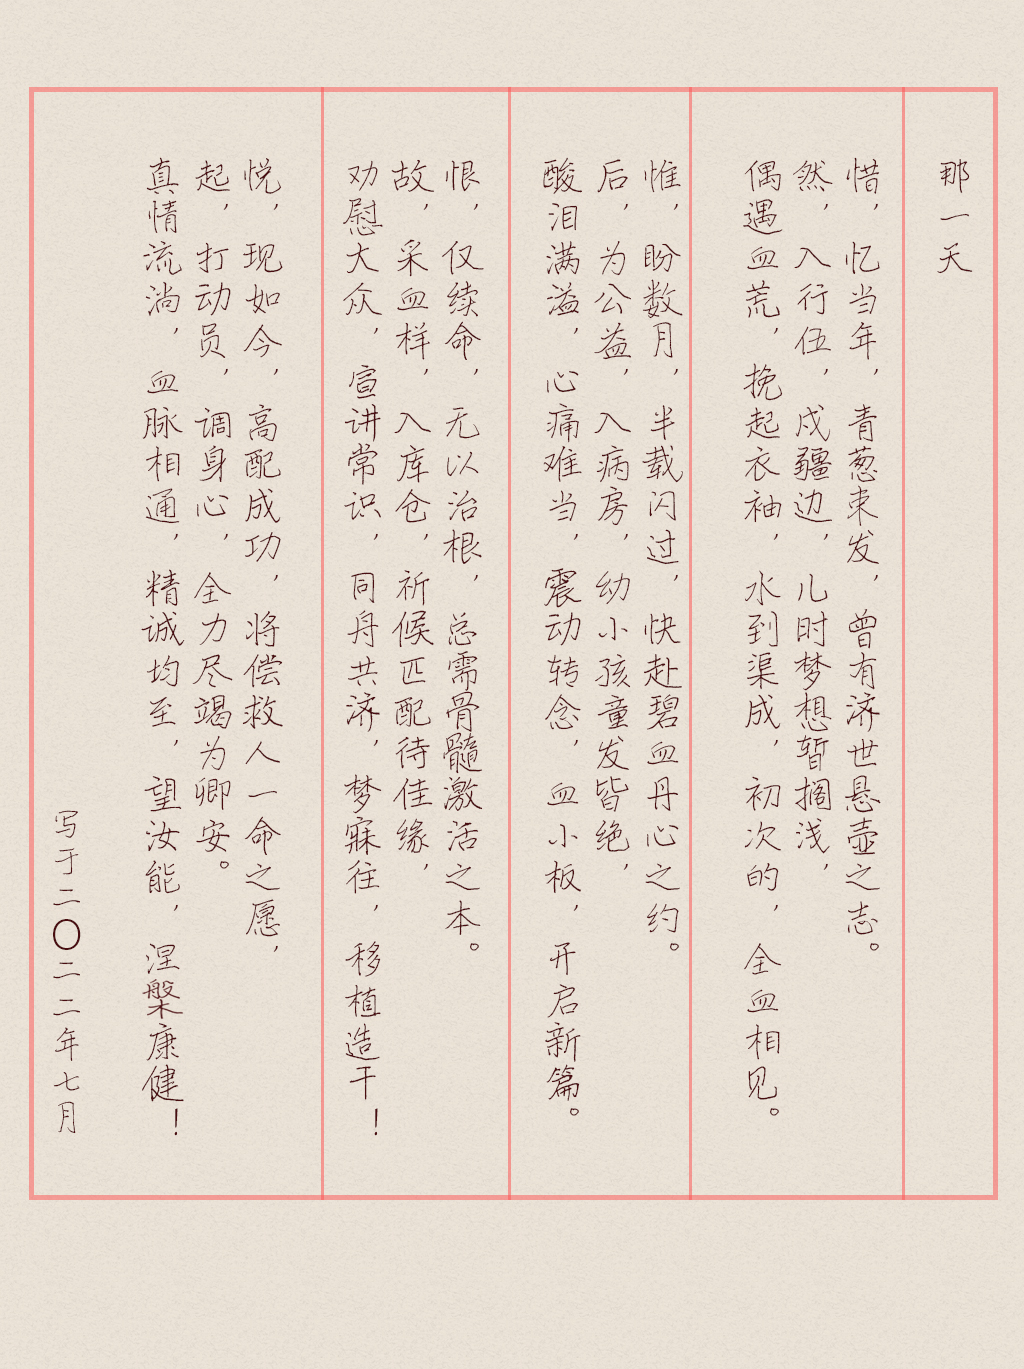 那一天
惜，忆当年，青葱束发，曾有济世悬壶之志。
然，入行伍，戍疆边，儿时梦想暂搁浅，
偶遇血荒，挽起衣袖，水到渠成，初次的，全血相见。
惟，盼数月，半载闪过，快赴碧血丹心之约。
后，为公益，入病房，幼小孩童发皆绝，
酸泪满溢，心痛难当，震动转念，血小板，开启新篇。
恨，仅续命，无以治根，总需骨髓激活之本。
故，采血样，入库仓，祈候匹配待佳缘，
劝慰大众，宣讲常识，同舟共济，梦寐往，移植造干！
悦，现如今，高配成功，将偿救人一命之愿，
起，打动员，调身心，全力尽竭为卿安。
真情流淌，血脉相通，精诚均至，望汝能，涅槃康健！
写于二〇二二年七月